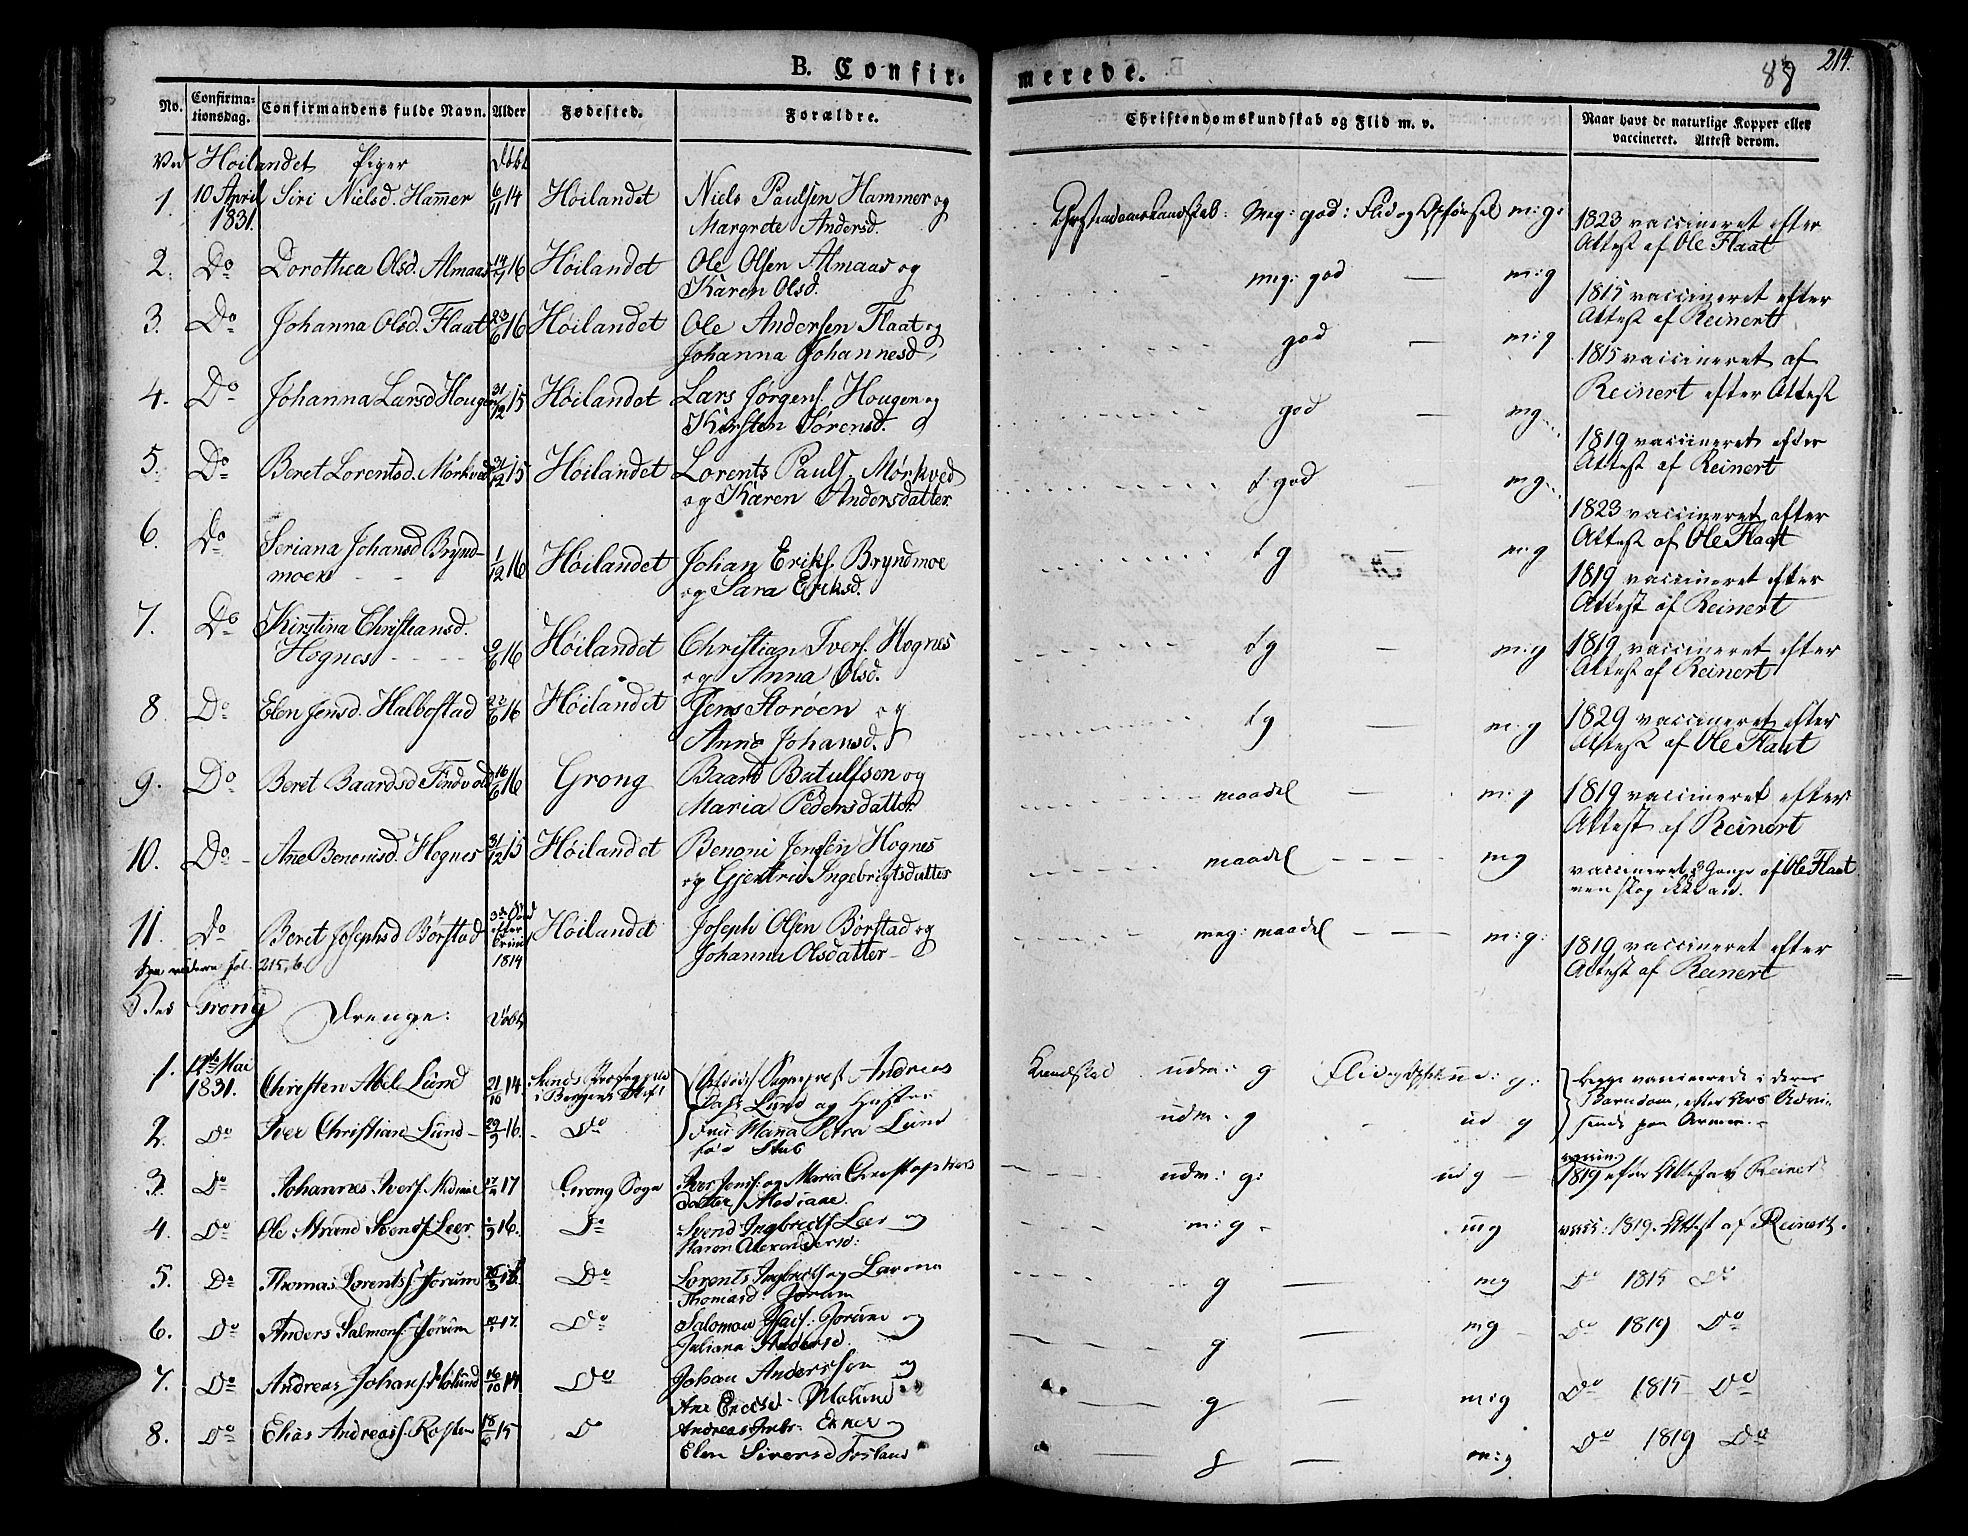 B. Confir-
merede.
88
214.
No. Confirma-tionsdag. Confirmandens fulde Navn. Alder Fødested. Forældre. Christendomskundskab og Flid m. v. Naar havt de naturlige Kopper eller vaccineret. Attest derom.
Ved Høilandet Piger Døbt
1. 10 April 1831. Siri Nielsd. Hammer 6/11 14 Høilandet Niels Paulsen Hammer og
Margrete Andersd. Christendomskundskab: Meg: god: Flid og Opførsel m: g: 1823 vaccineret efter
Attest af Ole Flaat
2. Do Dorothea Olsd. Almaas 16 Høilandet Ole Olsen Almaas og
Karen Olsd. meg: god — m: g 1815 vaccineret efter
Attest af Reinert
3. Do Johanna Olsd. Flaat 23/6 16 Høilandet Ole Andersen Flaat og
Johanna Johannesd god — m: g 1815 vaccineret af
Reinert efter Attest
4. Do Johanna Larsd Hougen 31/12 15 Høilandet Lars Jørgens. Hougen og
Kirsten Sørensd. god — mg 1819 vaccineret efter
Attest af Reinert
5. Do Beret Lorentsd. Mørkved 31/12 15 Høilandet Lorents Pauls Mørkved
og Karen Andersdatter t god — mg 1823 vaccineret efter
Attest af Ole Flaat
6. Do Seriana Johansd Brynd-
moen 1/12 16 Høilandet Johan Eriks. Bryndmoe
og Sara Eriksd. t g — m: g 1819 vaccineret efter
Attest af Reinert
7. Do Kirstina Christiansd.
Hognes 16 Høilandet Christian Ivers. Hognes
og Anna Olsd. t g — m: g 1819 vaccineret efter
Attest af Reinert
8. Do Elen Jensd. Halbostad 22/6 16 Høilandet Jens Storøen og
Anna Johansd. t g — m: g 1829 vaccineret efter
Attest af Ole Flaat
9. Do Beret Baardsd 16/6 16 Grong Baard Batulfsen og
Maria Pedersdatter maadel — m: g 1819 vaccineret efter
Attest af Reinert
10. Do Ane Benonisd. Hognes 31/12 15 Høilandet Benoni Jensen Hognes
og Gjertrud Ingebrigtsdatter maadel — mg vaccineret 2 Gange af Ole Flaat
men slog ikke an.
11. Do Beret Josephsd Børstad 1814 Høilandet Joseph Olsen Børstad og
Johanna Olsdatter meg: maadel — m: g: 1819 vaccineret efter
Attest af Reinert
fol. 215, b.
Ved Grong Drenge: Døbt
1. 12te Mai 1831. Christen Abel Lund 21/10 14. i Bergens Stift Sogneprest Andreas
Dass Lund og Hustru Kundskab udm: g Flid og Opførsel ud: g: begge vaccinerede i deres
Barndom, efter
2. Do Iver Christian Lund 29/3 16. Do Fru Petra Lund
født Stub udm: g ud g
3. Do Johannes Ivers. 17 Grong Sogn Iver Jens. og Maria Christophers
datter Mediaae udm: g: ud g vaccin: 1819 efter Attest af Reinert
4. Do Ole Strand Svends. Leer. 16. Do Svend Ingbrets Leer og
Karen Alexandersd: m: g mg vacc: 1819. Attest af Reinert.
5. Do Thomas Lorents. Jørum 16. Do Lorents Ingbrets og
Thomasd. Jørum g — mg Do 1815 Do
6. Do Anders Salmons. Jørum 17. Do Salomon Jørum og
Juliana Andersd. g — mg Do 1819 Do
7. Do Andreas Johans. Molund 16/10 14 Do Johan Anderssen og
Ane Ericsd. Moelund g — m: g Do 1815 Do
8. Do Elias Andreass. Rosten 18/6 15 Do Andreas Ekner og
Elen Siversd Fosland g — m: g Do 1819 Do